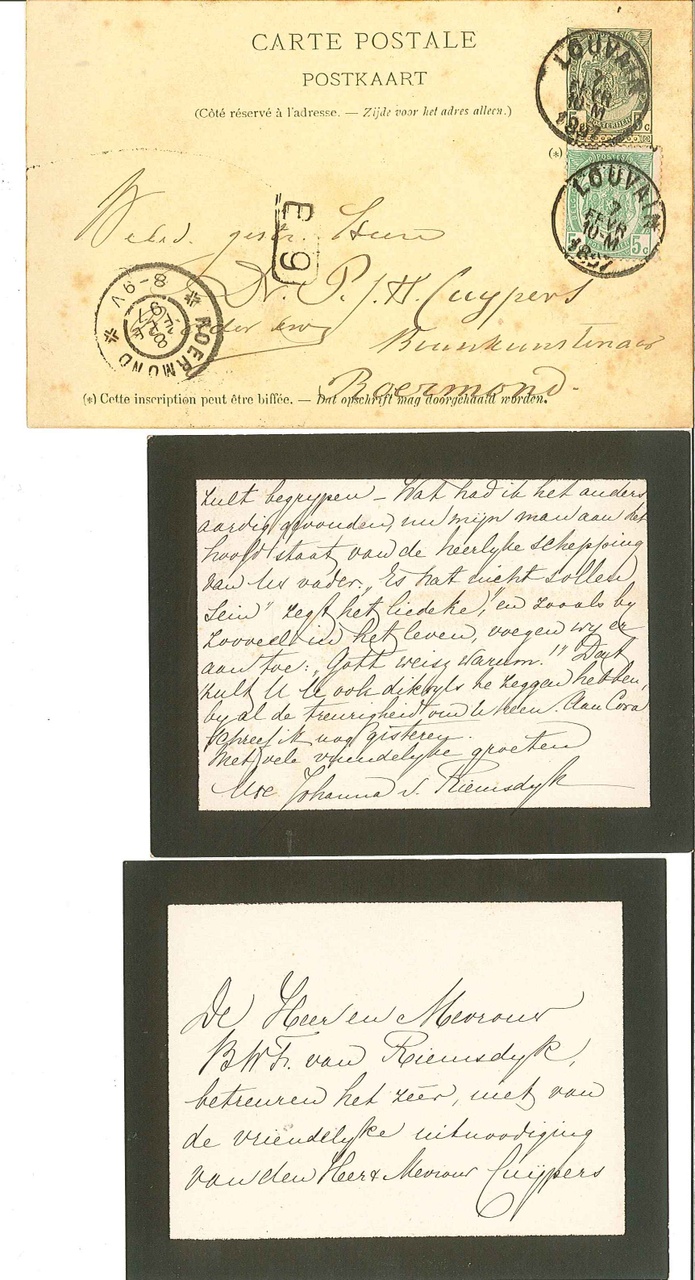 CARTE POSTALE
POSTKAART
(Côté réservé à l'adresse. — Zijde voor het adres alleen.)
LOUVAIN
7
FEVR
10-M
1897
5 C
(*)
LOUVAIN
7
FEVR
10-M
1897
5 C
E 9
gestr. Heer
Dr. P. J. H. Cuypers
Roermond.
ROERMOND
8-9V
8 FEB
97
(*) Cette inscription peut être biffée. — Dat opschrift mag doorgehaald worden.
zult begrypen — Wat had ik het anders
aardig gevonden, nu mijn man aan het
hoofd staat van de heerlyke schepping
van Uw vader. „Es hat nicht sollen
sein" zegt het liedeke, en zooals by
zooveel in het leven, voegen wy er
aan toe: „Gott weisz warum!" Dat
zult U ook dikwyls te zeggen hebben,
by al de treurigheid om U heen. Aan Cora
schreef ik nog gisteren.
Met vele vriendelyke groeten
Uwe Johanna v. Riemsdyk
De Heer en Mevrouw
B W F. van Riemsdyk,
betreuren het zéér, niet van
de vriendelyke uitnoodiging
van den Heer & Mevrouw Cuypers